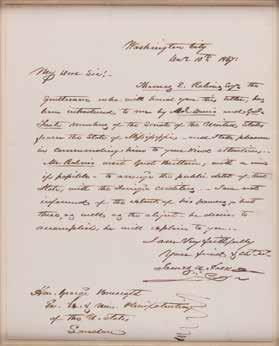 Washington City
Decr 10th 1847.
My Dear Sir:
Thomas E. Robins Esqr the
gentleman who will hand you this letter, has
been introduced to me by Mr Davis and Gov.
Foote, members of the Senate of the United States
from the State of Mississippi, and I take pleasure
in commending him to your kind attention.
Mr Robins visits Great Brittain, with a view
if possible to arrange the public debt of that
State, with the foreign creditors. I am not
informed of the extent of his powers, but
these, as well as the object he desires to
accomplish, he will explain to you.
I am Very faithfully
Your friend & Obt St.
James K. Polk
Hon. George Bancroft
En. Ex. & Min. Plenipotentiary
of the U. States
London